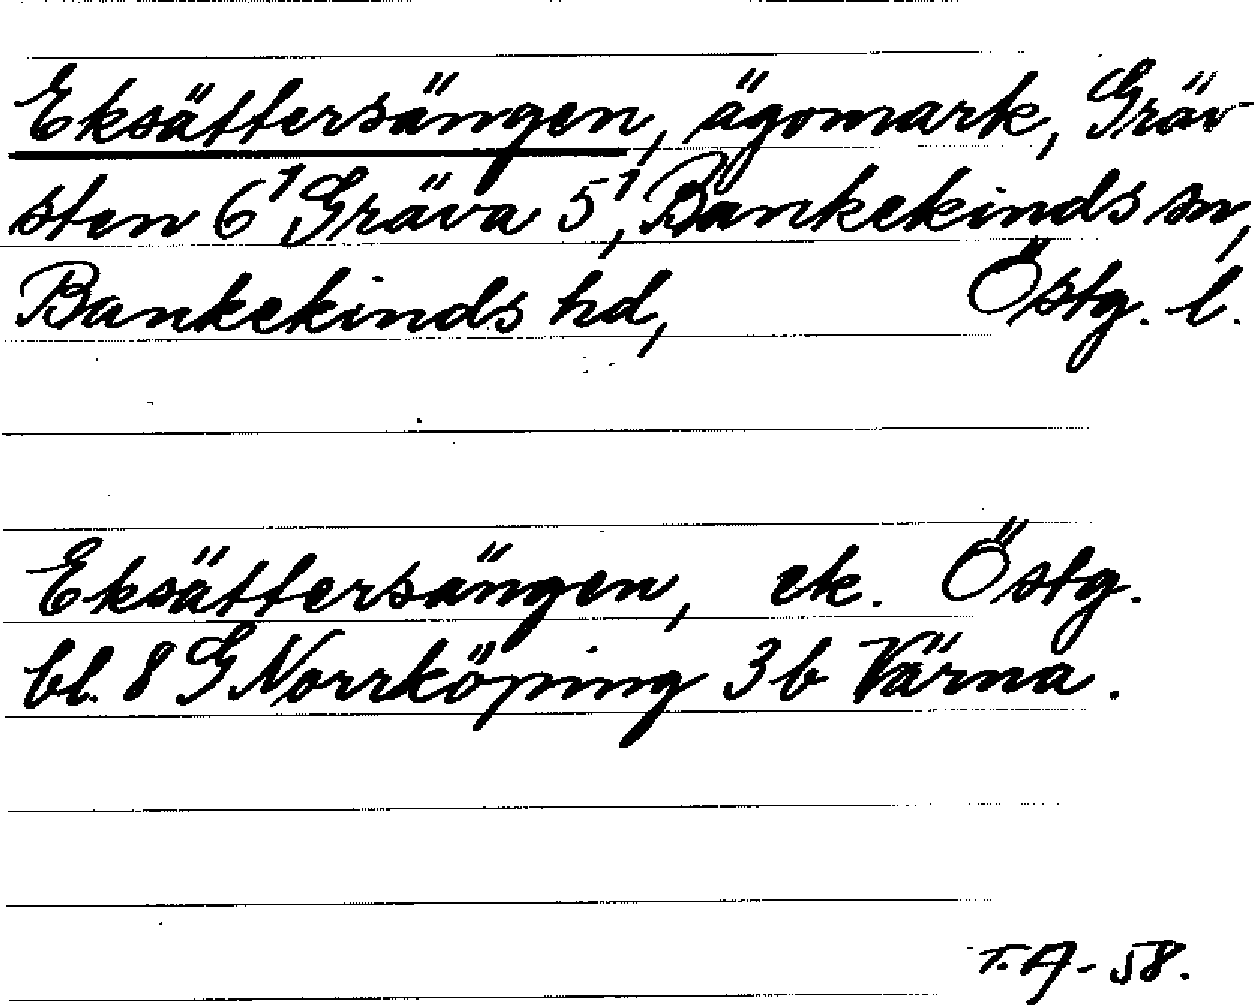 Eksättersängen, ägomark, Gräv
sten 6¹ Gräva 5¹, Bankekinds sn,
Bankekinds hd, Östg. l.
Eksättersängen, ek. Östg.
bl. 8 G Norrköping 3b Värna.
T.A-58.